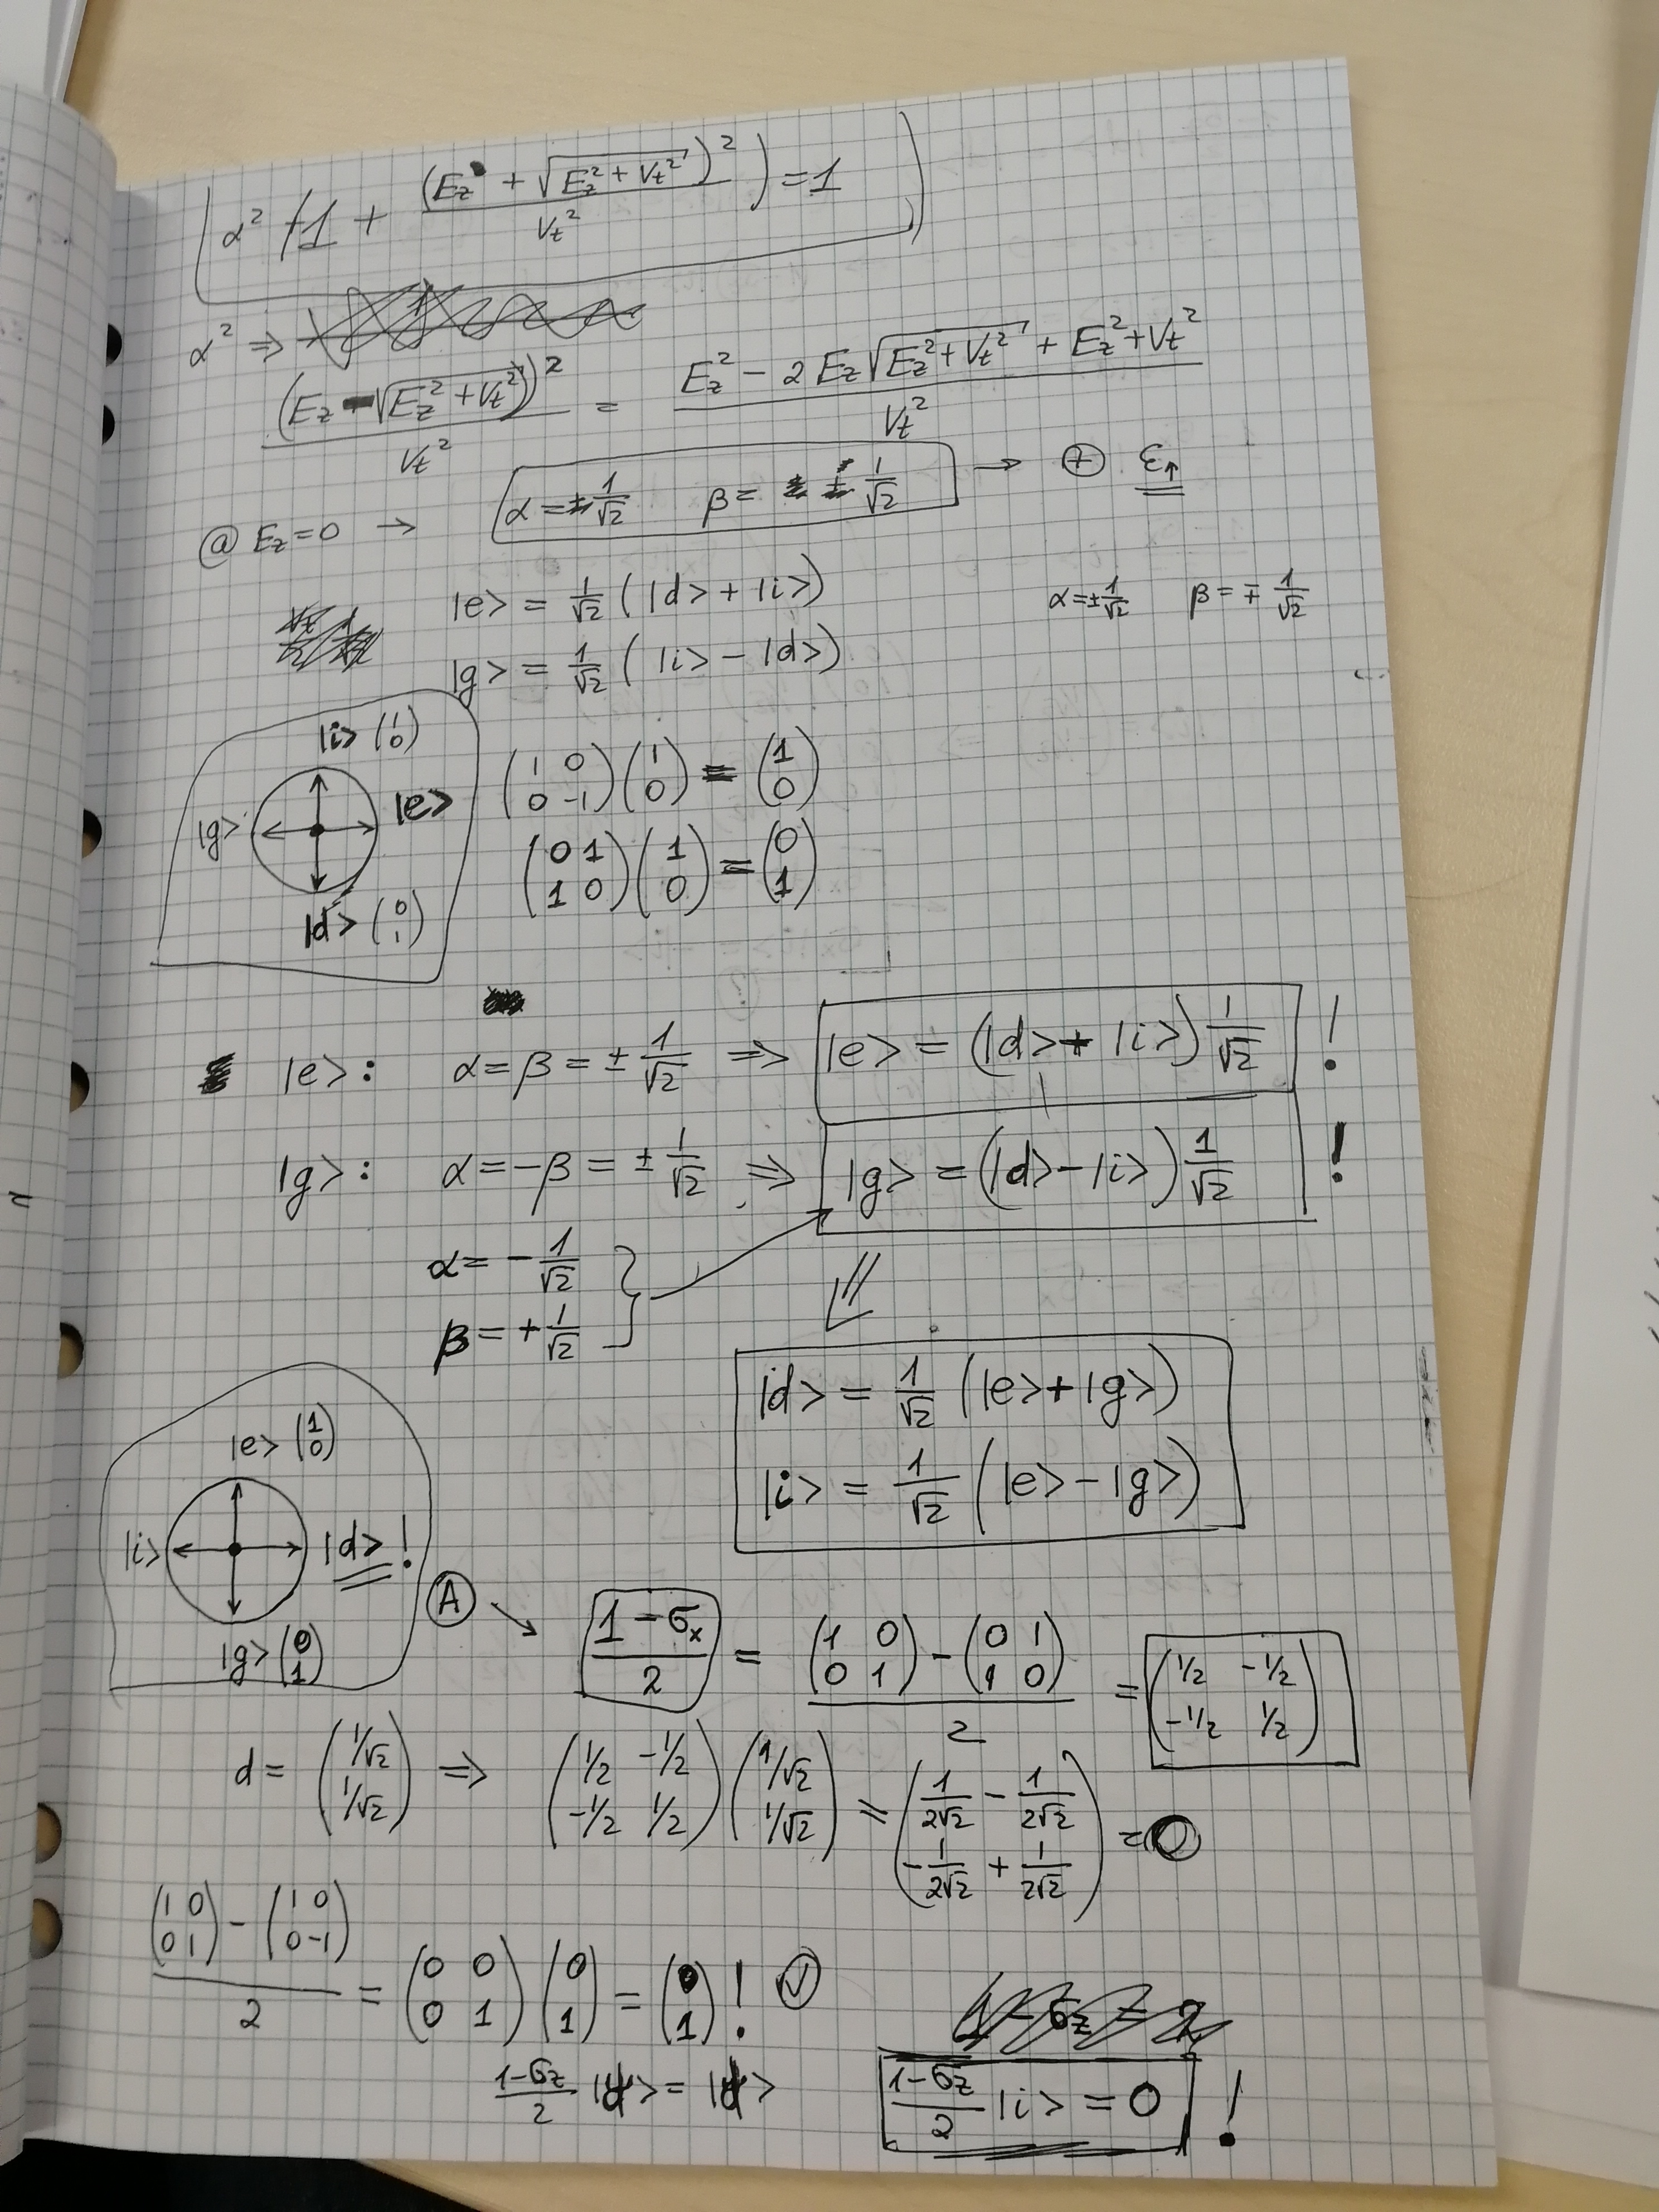 α² (1 + (E_z + √(E_z² + V_t²))² / V_t²) = 1
α² ⇒
(E_z - √(E_z² + V_t²))² / V_t² = (E_z² - 2 E_z √(E_z² + V_t²) + E_z² + V_t²) / V_t²
@ E_z = 0 → α = ± 1/√2 β = ± 1/√2 → ⊕ ε↑
|e> = 1/√2 (|d> + |i>) α = ± 1/√2 β = ∓ 1/√2
|g> = 1/√2 (|i> - |d>)
|i> (1 0)
|g> |e>
|d> (0 1)
(1 0; 0 -1)(1; 0) = (1; 0)
(0 1; 1 0)(1; 0) = (0; 1)
|e>: α = β = ± 1/√2 ⇒ |e> = (|d> + |i>) 1/√2 !
|g>: α = -β = ± 1/√2 ⇒ |g> = (|d> - |i>) 1/√2 !
α = - 1/√2
β = + 1/√2
|d> = 1/√2 (|e> + |g>)
|i> = 1/√2 (|e> - |g>)
|e> (1 0)
|i> |d> !
|g> (0 1)
Ⓐ → (1 - σ_x)/2 = ((1 0; 0 1) - (0 1; 1 0))/2 = (1/2 -1/2; -1/2 1/2)
d = (1/√2; 1/√2) ⇒ (1/2 -1/2; -1/2 1/2)(1/√2; 1/√2) = (1/2√2 - 1/2√2; -1/2√2 + 1/2√2) = 0
((1 0; 0 1) - (1 0; 0 -1))/2 = (0 0; 0 1)(0; 1) = (0; 1) ! ✓
(1-σ_z)/2 |d> = |d>
(1-σ_z)/2 |i> = 0 !